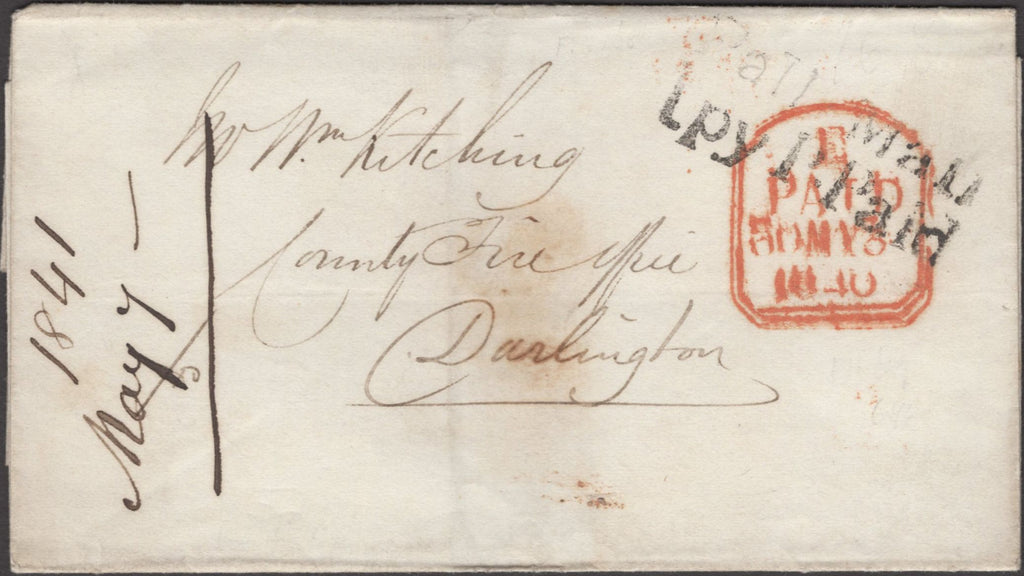 1841
May 7
Mr Wm Kitching
County Fire Office
Darlington
Pall Mall
1py P Paid
E
PAID
30MY3
1840